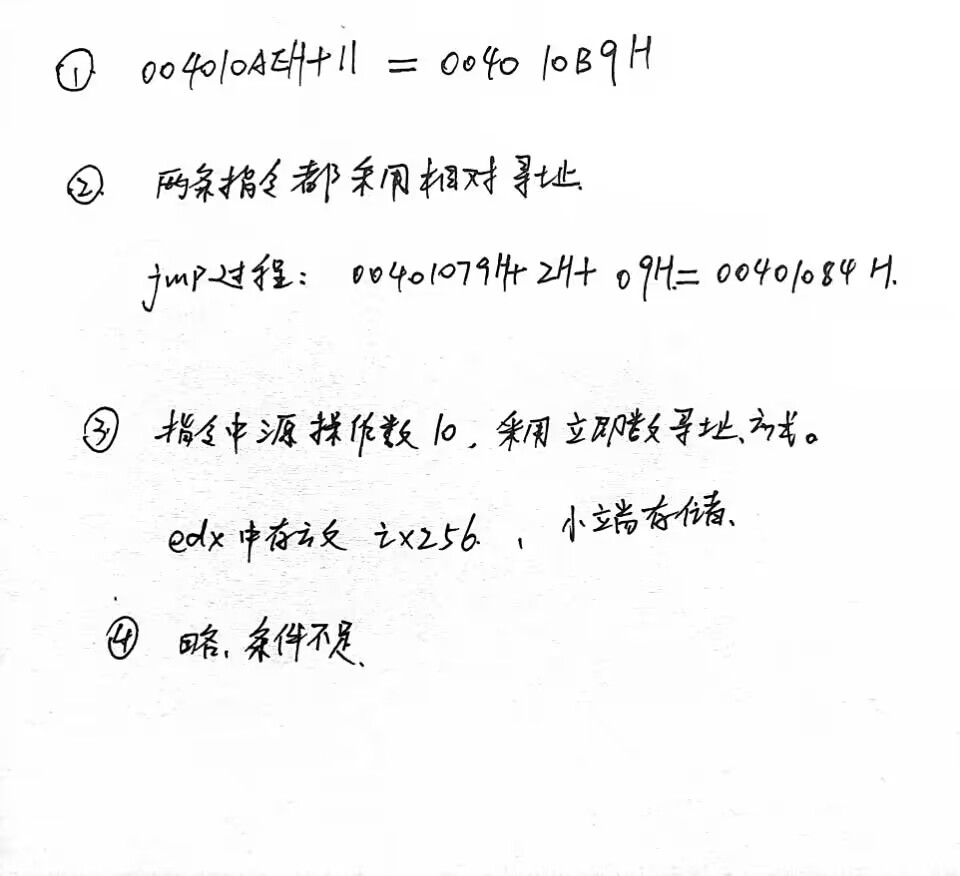 ① 004010AEH+11 = 004010B9H
② 两条指令都采用相对寻址
jmp过程: 00401079H+2H+09H=00401084H.
③ 指令中源操作数10,采用立即数寻址方式。
edx中存放 i×256. , 小端存储、
④ 略,条件不足、